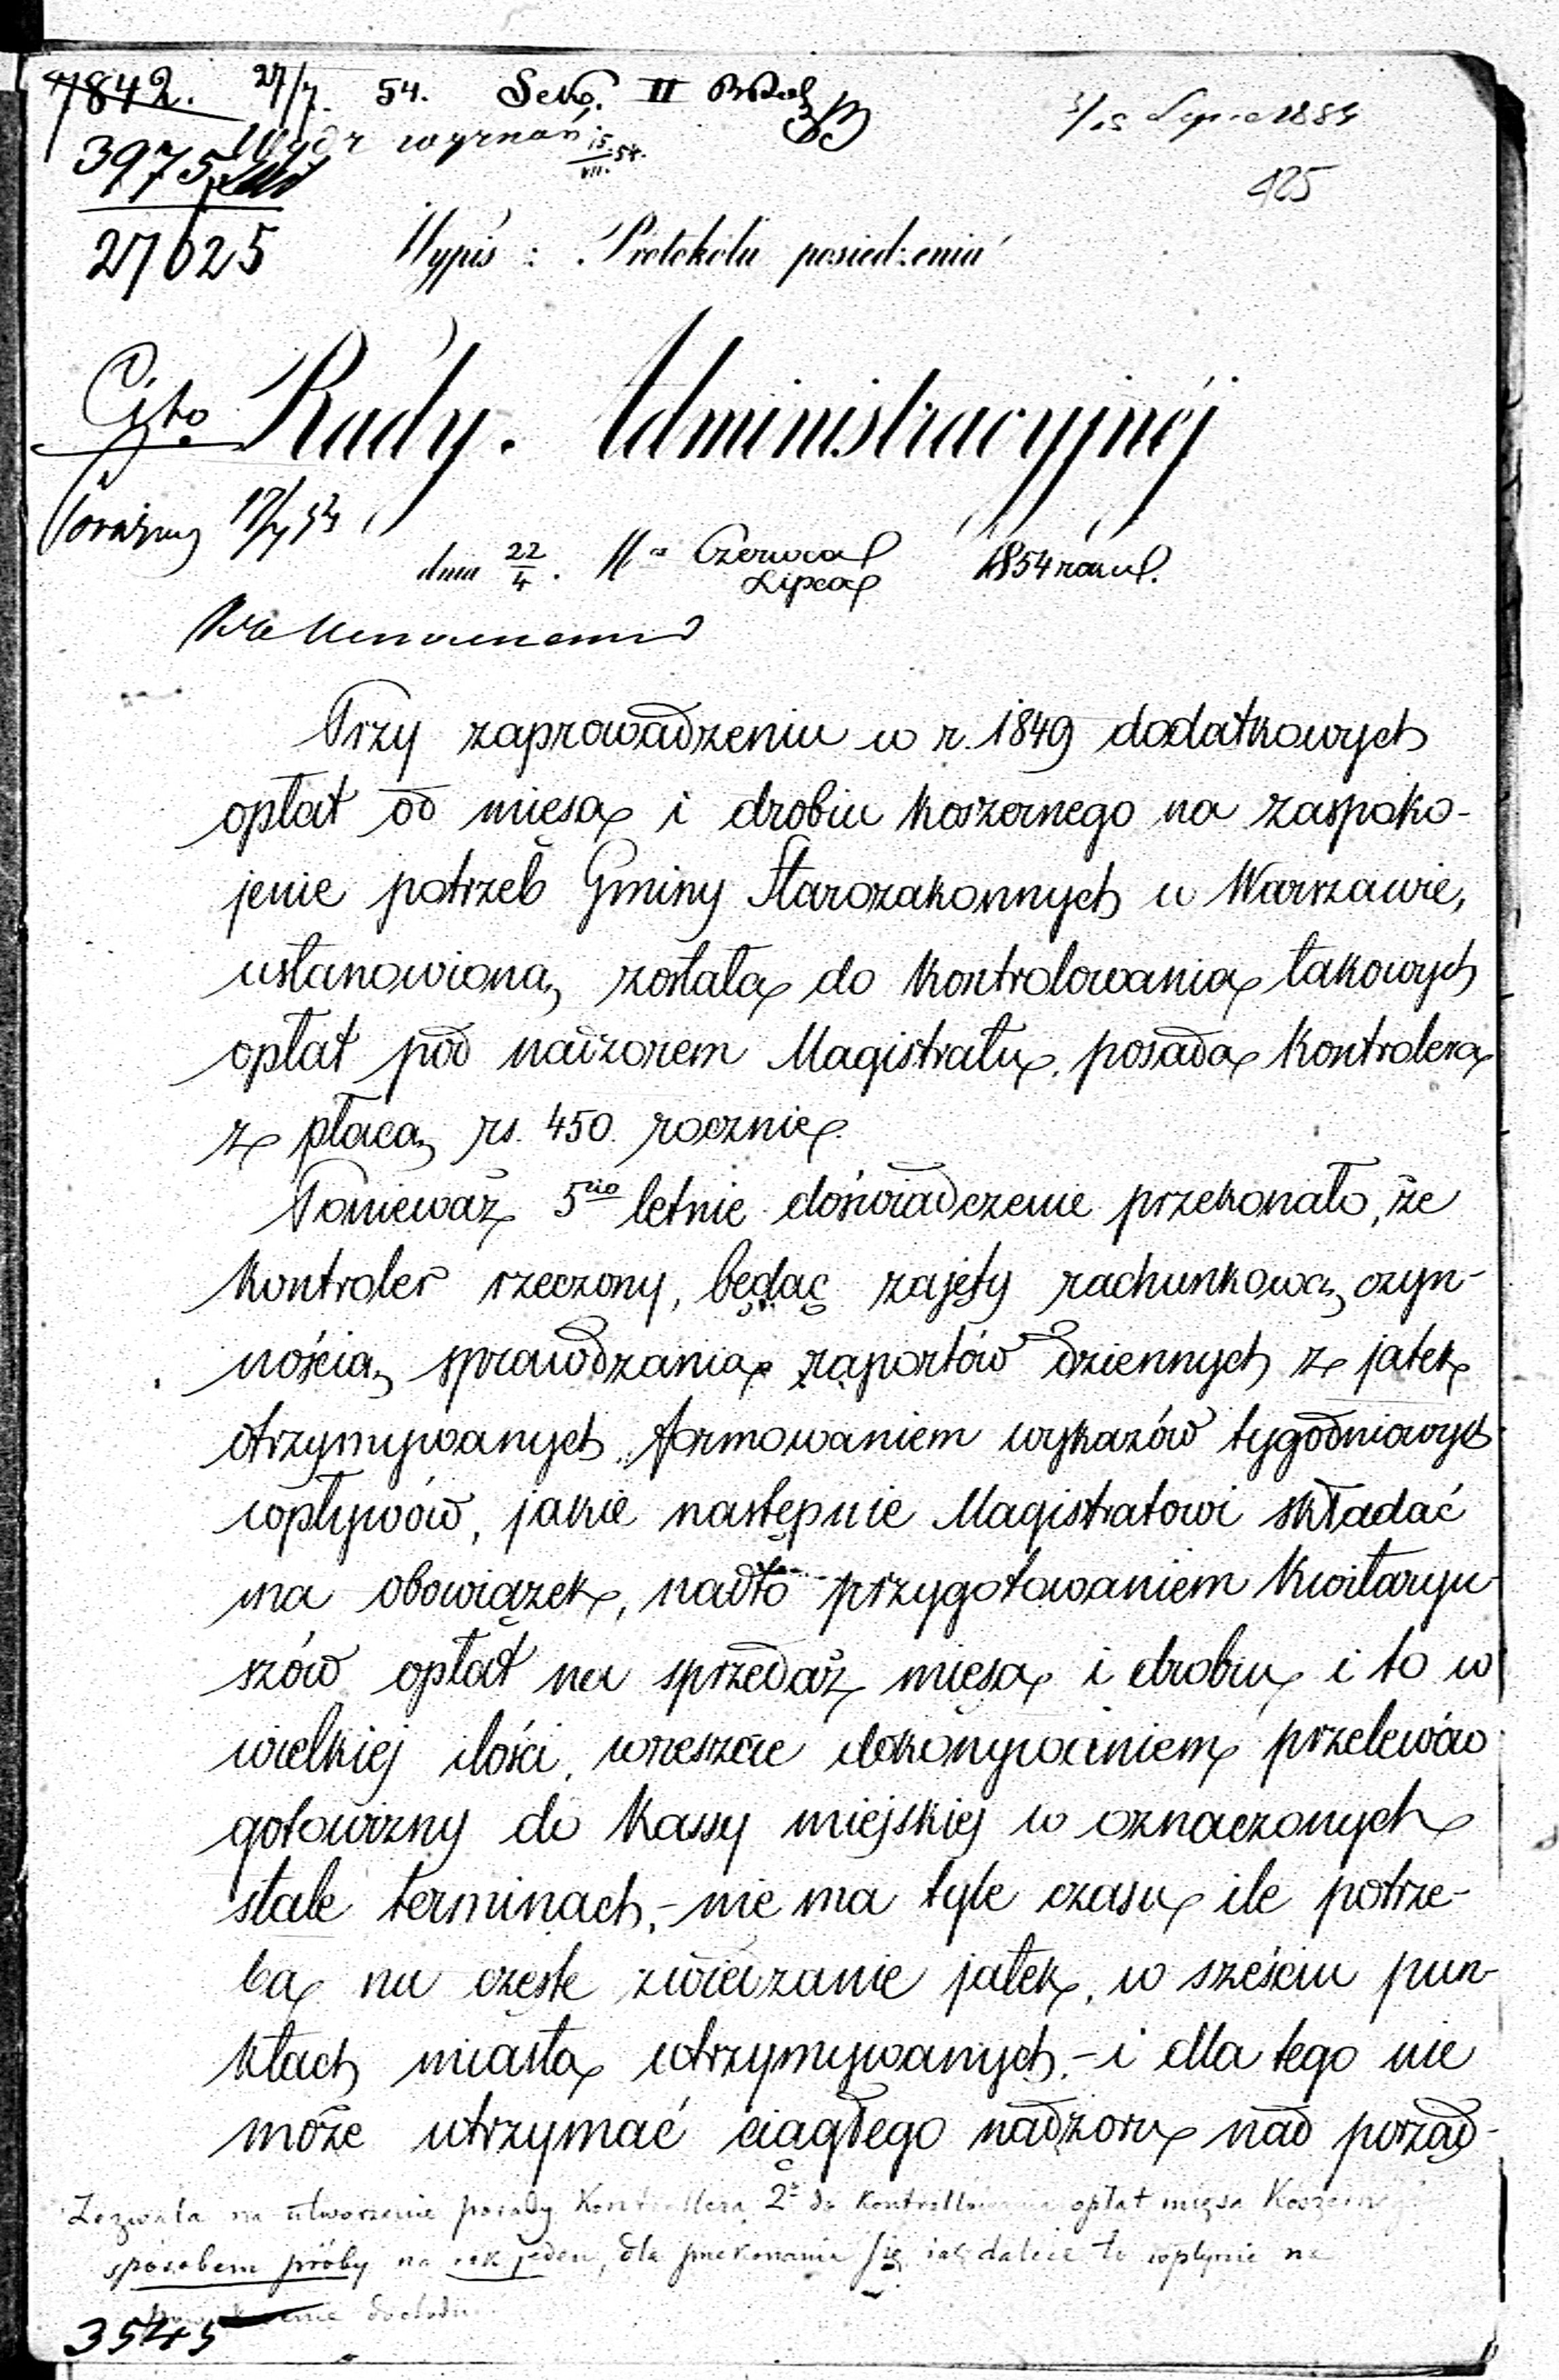 7842. 27/7. 54. Sekc. II
3/15 1854
3975 Wydz wyznań 15/VII. 54.
425
27625
Wypis z Protokółu posiedzenia
Cito Rady Administracyjnéj
17/7 54
dnia 22/4. Czerwca/Lipca 1854 roku.
Przy zaprowadzeniu w r. 1849 dodatkowych
opłat od mięsa i drobiu koszernego na zaspoko-
jenie potrzeb Gminy Starozakonnych w Warszawie,
ustanowioną została do kontrolowania takowych
opłat pod nadzorem Magistratu, posada Kontrolera
z płacą rs. 450. rocznie.
Ponieważ 5cio letnie doświadczenie przekonało, że
Kontroler rzeczony, będąc zajęty rachunkową czyn-
nością sprawdzania raportów dziennych z jatek
otrzymywanych, formowaniem wykazów tygodniowych
wpływów, jakie następnie Magistratowi składać
ma obowiązek, nadto przygotowaniem Kwitaryu-
szów opłat na sprzedaż mięsa i drobiu i to w
wielkiej ilości, wreszcie dokonywaniem przelewów
gotowizny do Kassy miejskiej w oznaczonych
stale terminach, - nie ma tyle czasu ile potrze-
ba na częste zwiedzanie jatek, w sześciu pun-
ktach miasta utrzymywanych, - i dla tego nie
może utrzymać ciągłego nadzoru nad porząd-
Zezwala na utworzenie posady Kontrollera 2o do kontrollowania opłat mięsa Koszernego
sposobem próby na rok jeden, dla przekonania się, jak dalece to wpłynie na
powiększenie dochodu.
3545